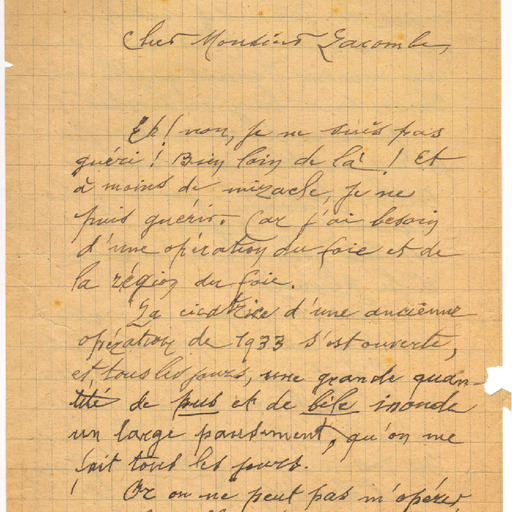 Cher Monsieur Lacombe,
Eh! non, je ne suis pas
guéri! Bien loin de là! Et
à moins de miracle, je ne
puis guérir. Car j'ai besoin
d'une opération du foie et de
la région du foie.
La cicatrice d'une ancienne
opération de 1933 s'est ouverte,
et tous les jours, une grande quan-
tité de pus et de bile inonde
un large pansement, qu'on me
fait tous les jours.
Or on ne peut pas m'opérer,